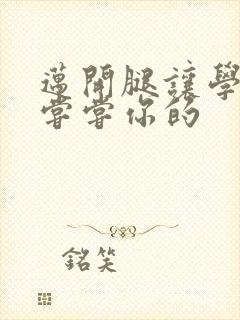 邁開腿讓學
嘗嘗你的
銘笑